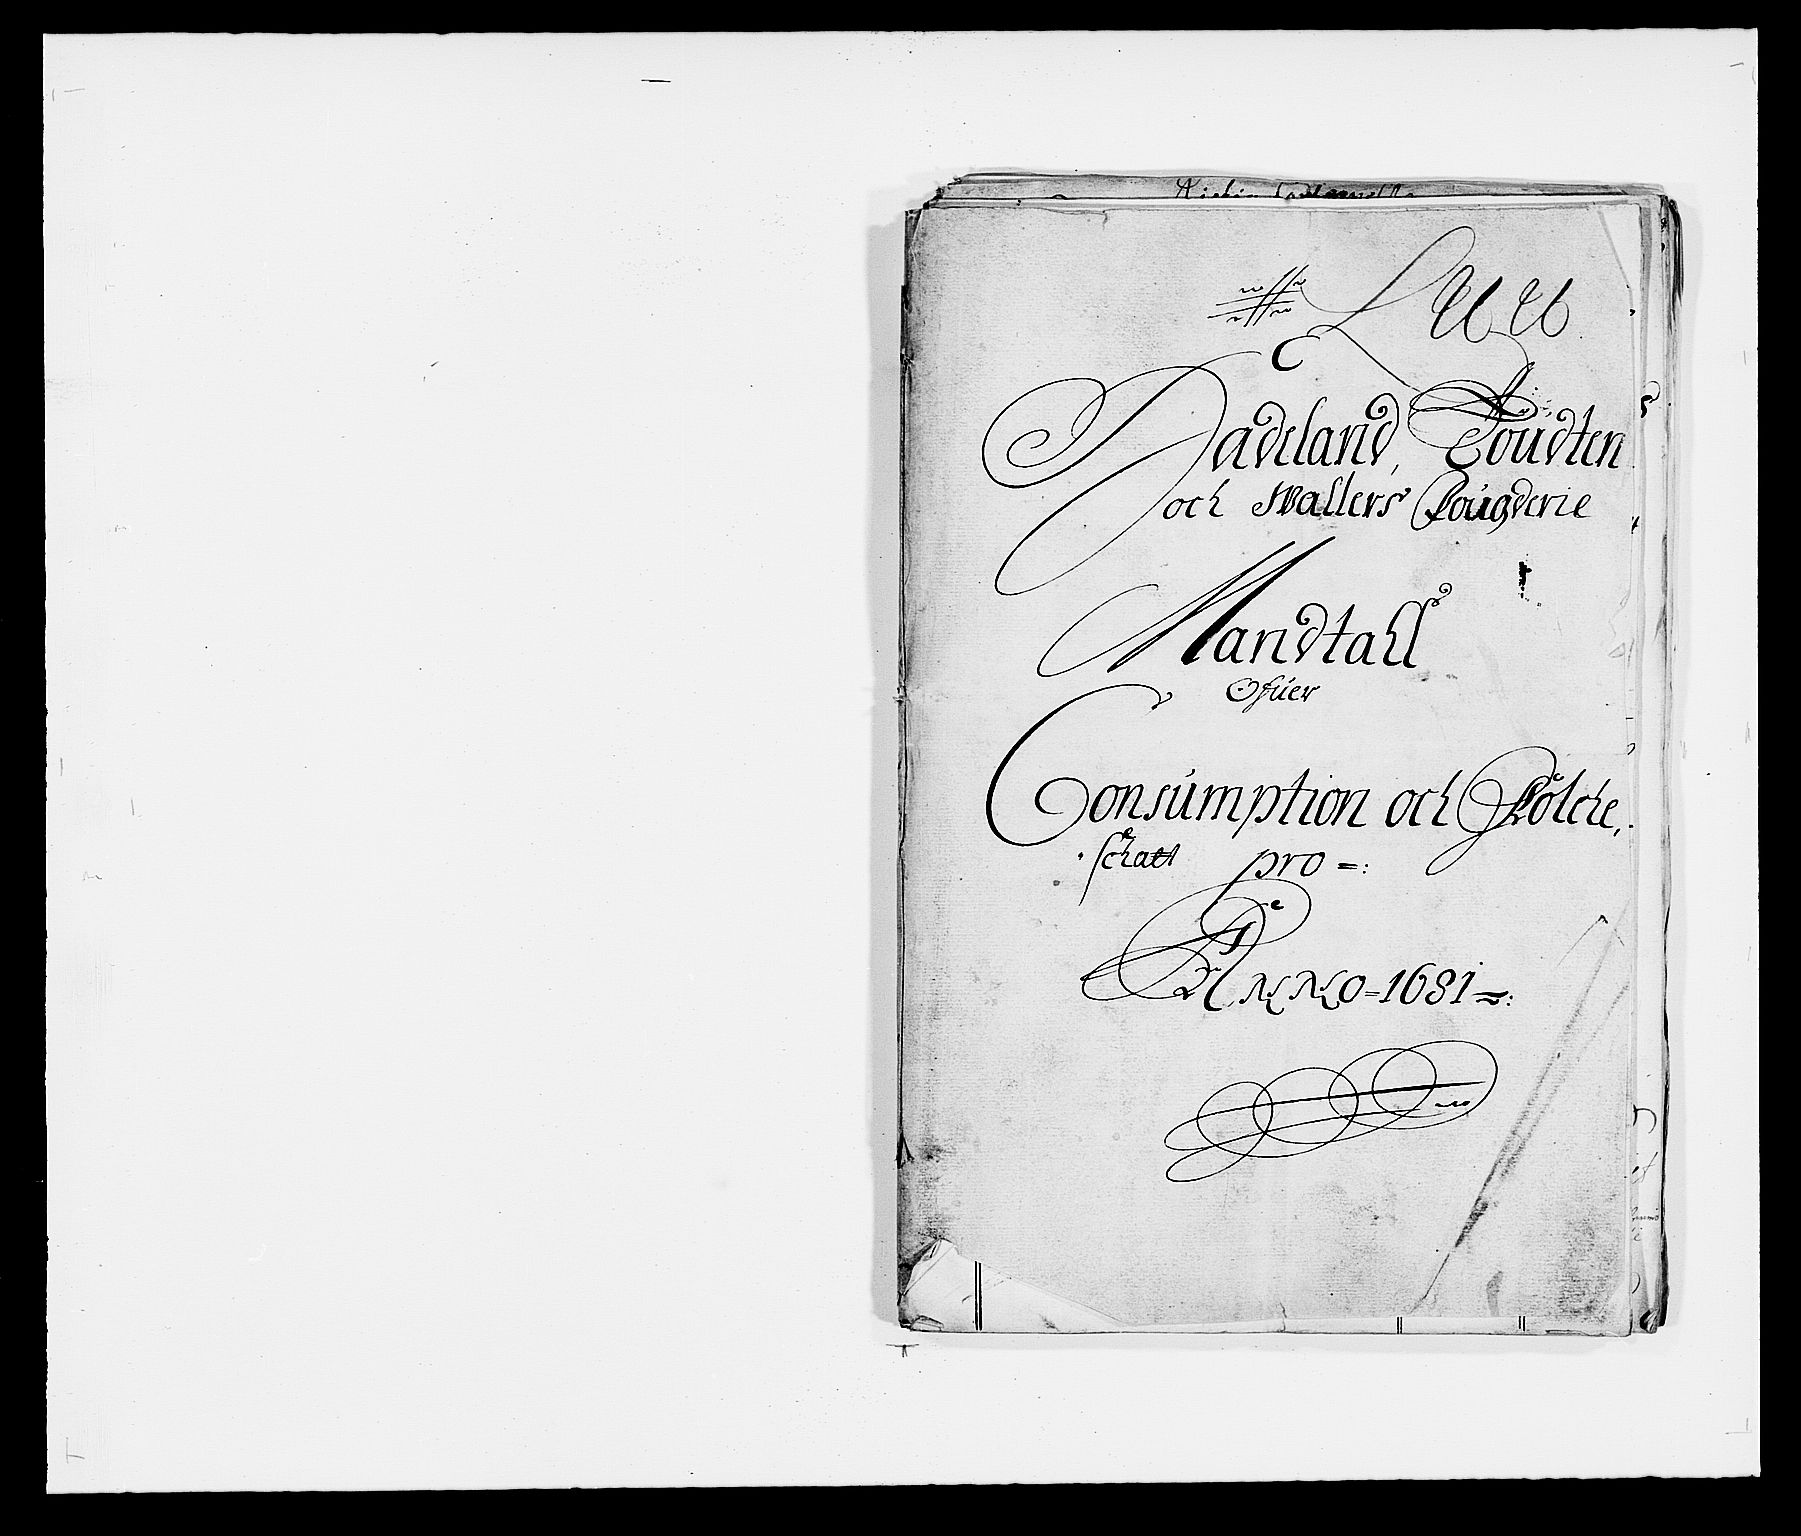 L U U
Hadeland, Toudten
och Wallers Fougderie
Mandtall
Ofuer
Consumption och Folche,
schatt pro =:
ANNO-1681=: